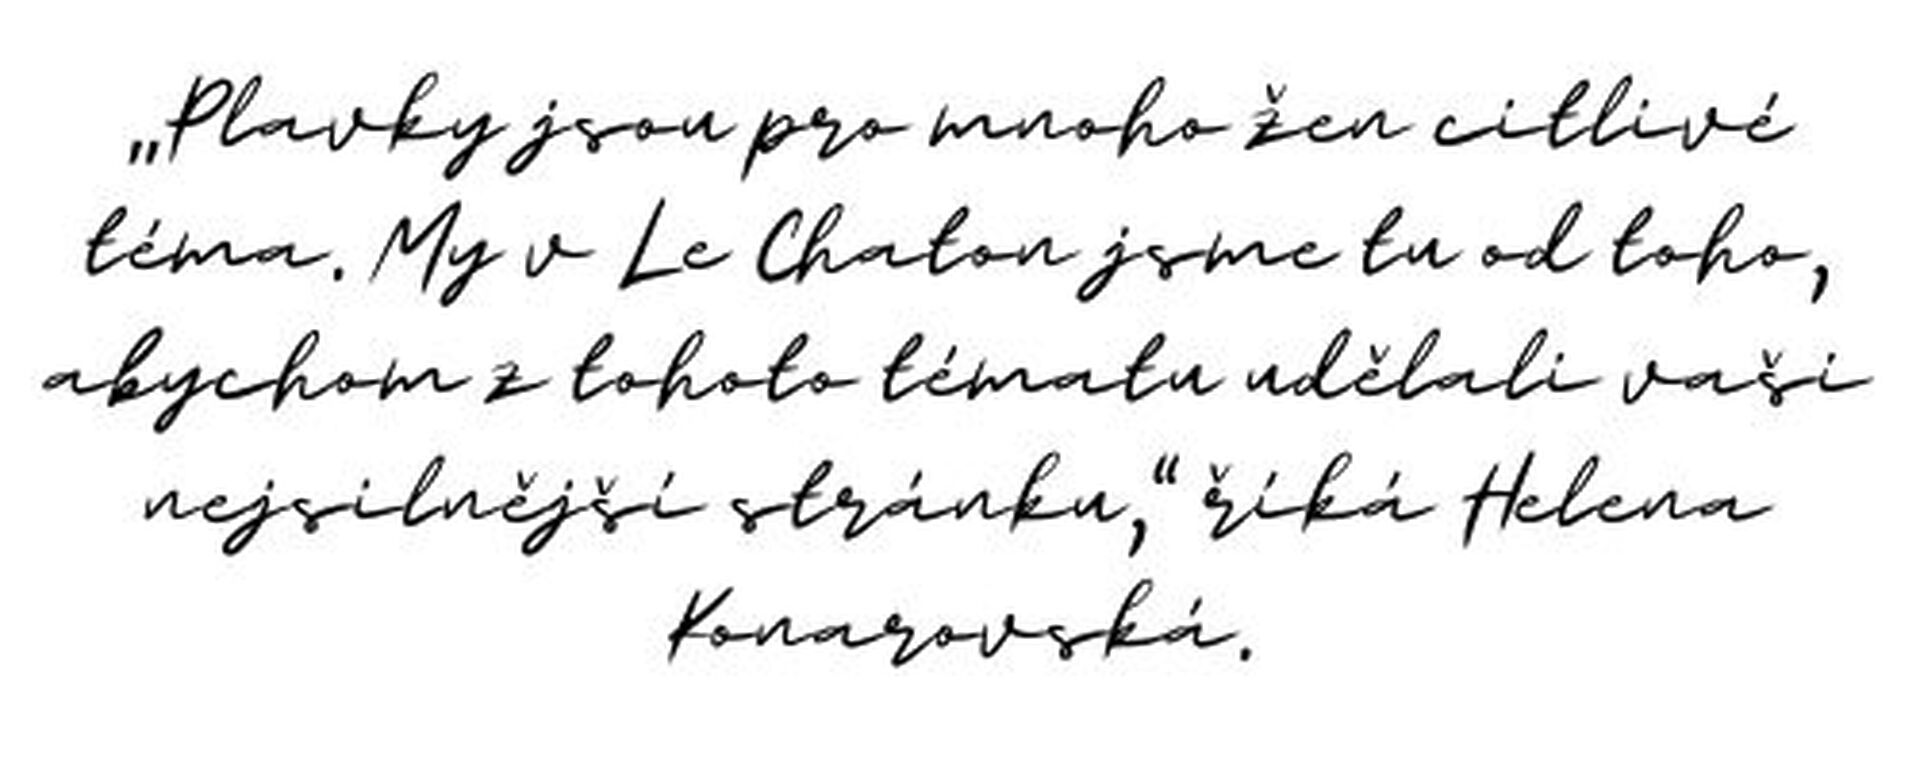 „Plavky jsou pro mnoho žen citlivé
téma. My v Le Chaton jsme tu od toho,
abychom z tohoto tématu udělali vaši
nejsilnější stránku,“ říká Helena
Konarovská.